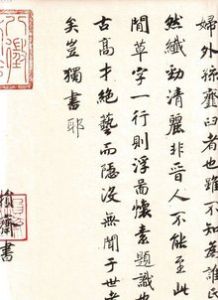 婦外孫齏臼者也雖不知為誰氏
然纖勁清麗非晉人不能至此
閒草字一行則浮圖懷素題識也
古高才絕藝而隱沒無聞于世者
矣豈獨書耶
齋書